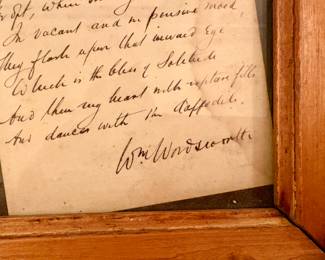 oft, when on
In vacant and in pensive mood,
They flash upon that inward Eye
Which is the bliss of Solitude
And then my heart with rapture fills
And dances with the daffodils.
Wm Wordsworth